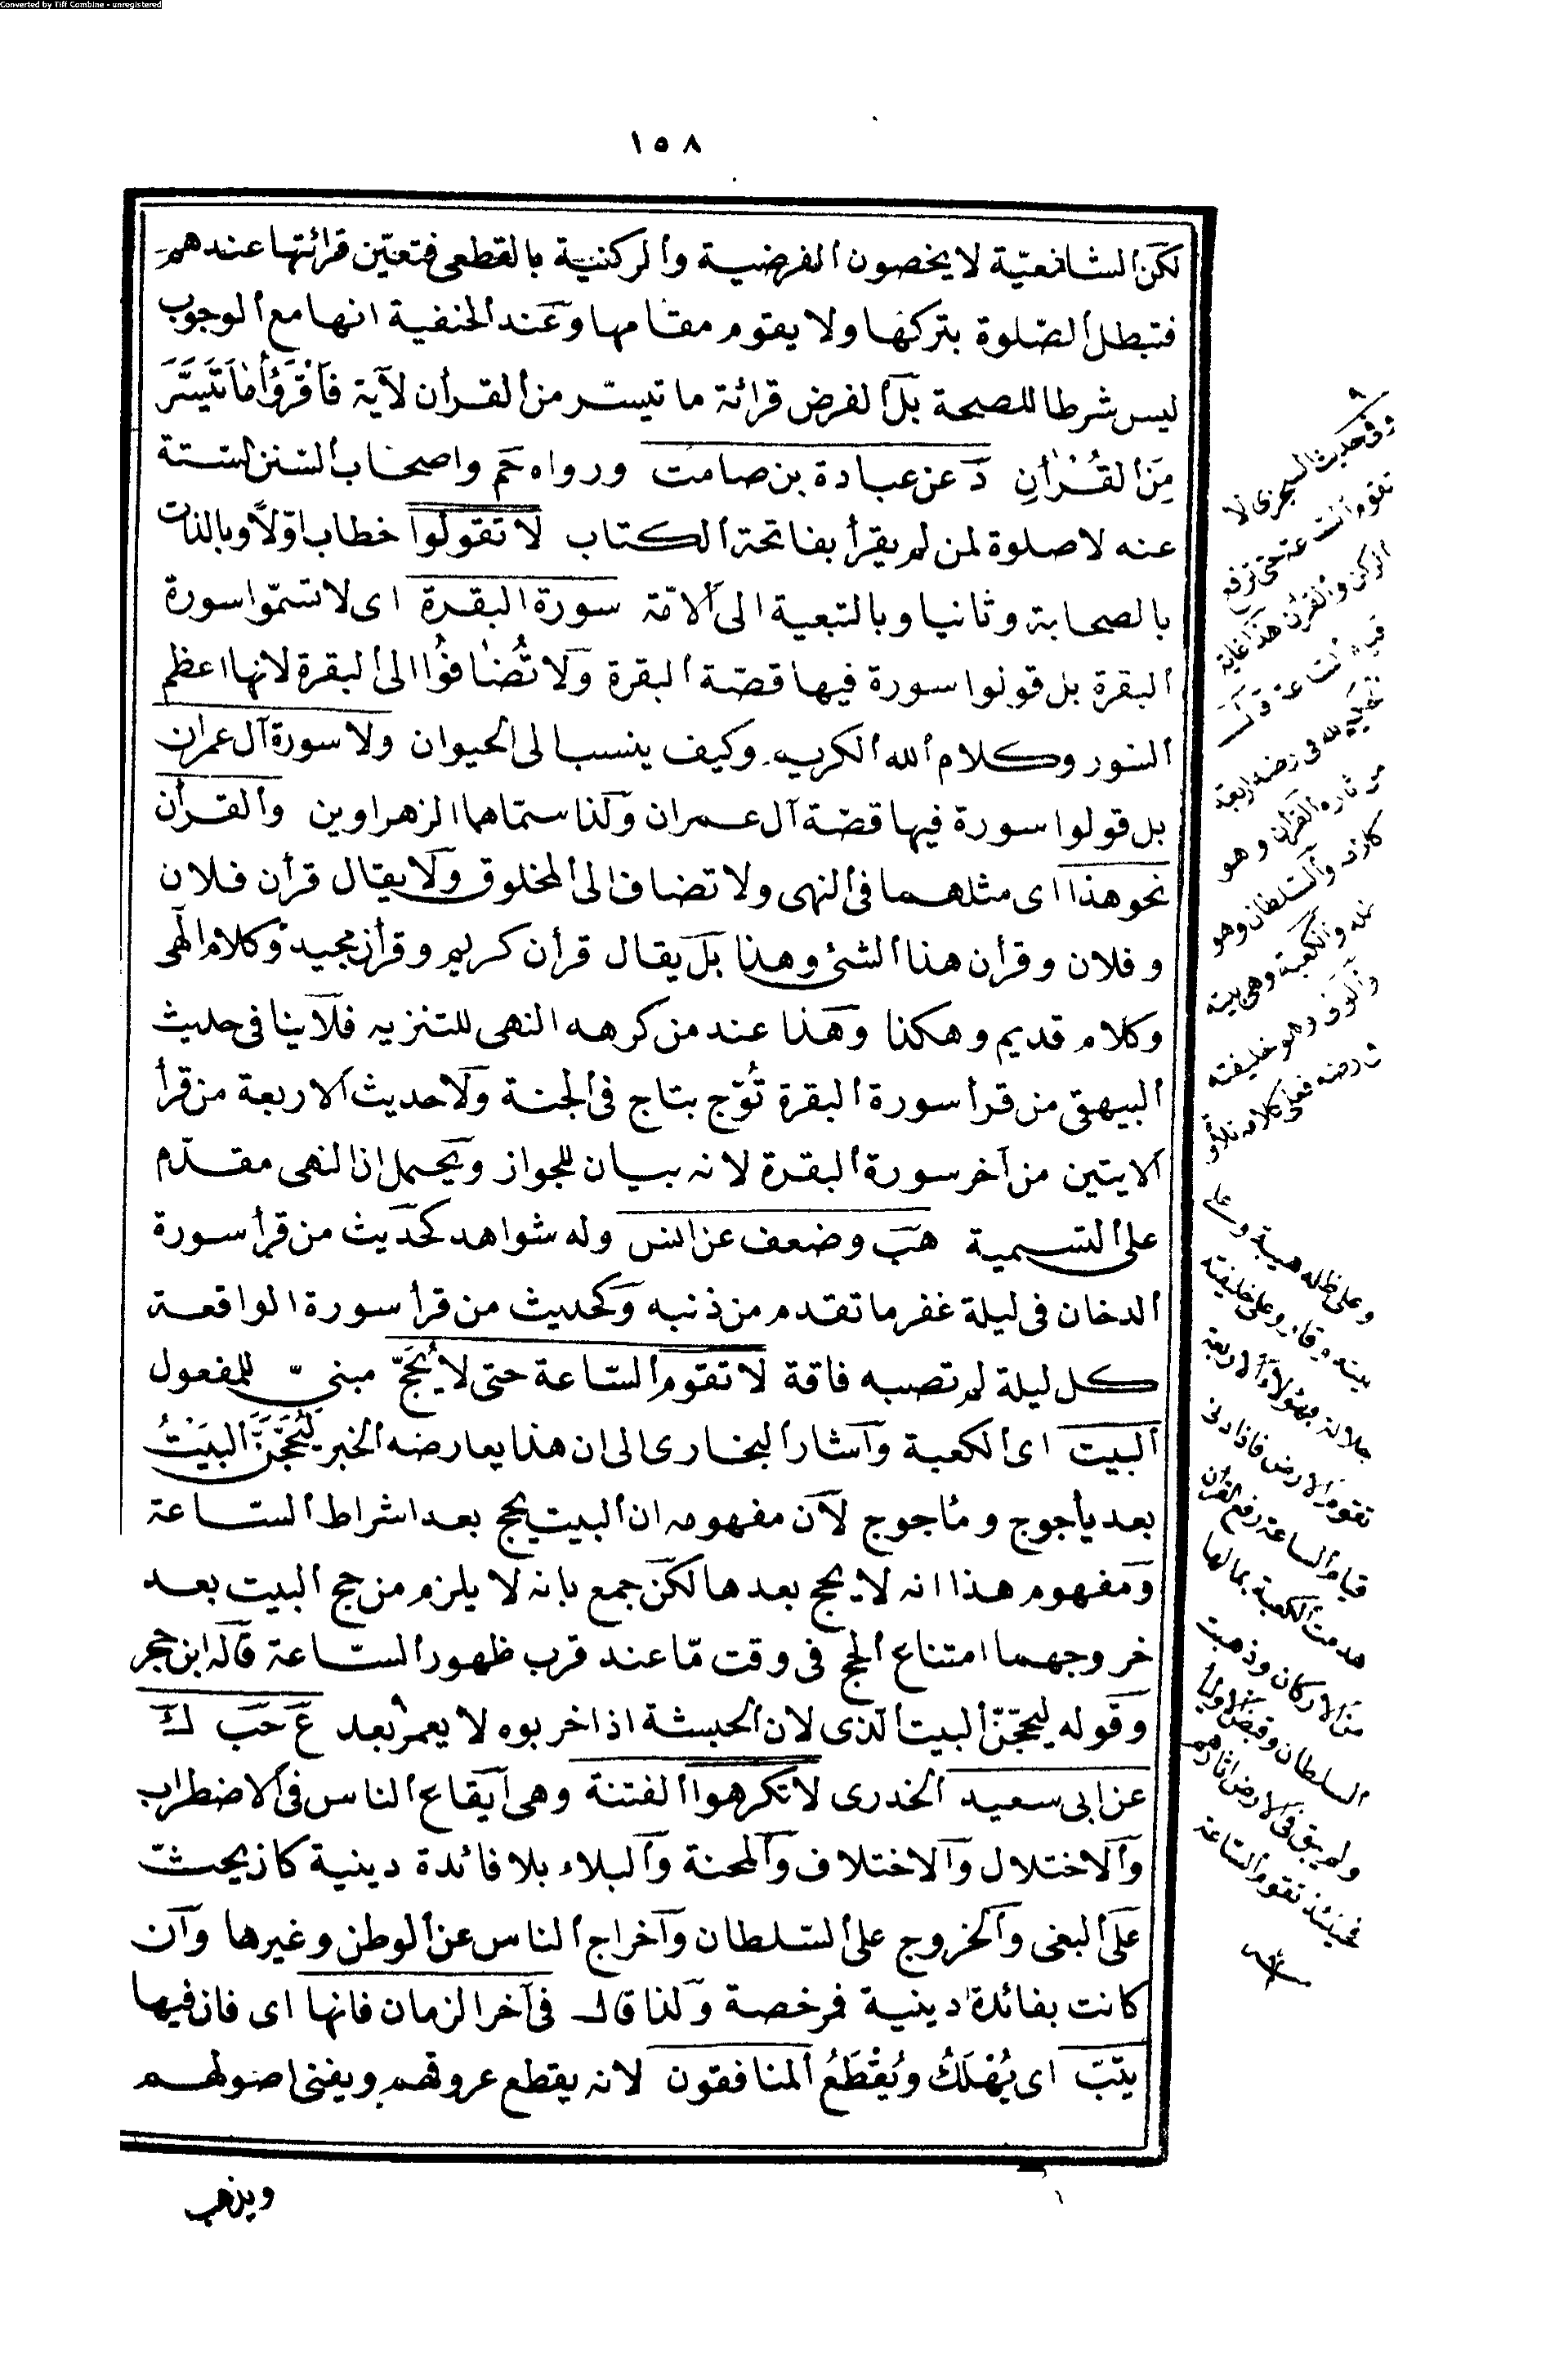 Converted by Tiff Combine - unregistered
١٥٨
لكن الشافعيّة لا يخصون الفرضية والركنية بالقطعى فتعيّن قرائتها عندهم
فتبطل الصّلوة بتركها ولا يقوم مقامها وعند الحنفية انها مع الوجوب
ليس شرطا للصحة بل الفرض قرائة ما تيسّر من القرأن لآية فَاقْرَؤُا مَا تَيَسَّرَ
مِنَ القُرْأنِ دَ عن عبادة بن صامت ورواه حَم واصحاب السّنن السّتة
عنه لا صلوة لمن لم يقرأ بفاتحة الكتاب لا تقولوا خطاب اوّلاً وبالذات
بالصحابة وثانيا وبالتبعية الى الامّة سورة البقرة اى لا تسمّوا سورة
البقرة بل قولوا سورة فيها قصّة البقرة ولا تُضَافُوا الى البقرة لانها اعظم
النور وكلام الله الكريم وكيف ينسب الى الحيوان ولا سورة آل عمران
بل قولوا سورة فيها قصّة آل عمران ولذا سمّاهما الزهراوين والقرأن
نحو هذا اى مثلهما فى النهى ولا تضاف الى المخلوق ولا يقال قرأن فلان
وفلان وقرأن هذا الشئ وهذا بل يقال قرأن كريم وقرأن مجيد وكلام الٓهى
وكلام قديم وهكذا وهذا عند من كرهه النهى للتنزيه فلا ينافى حديث
البيهقى من قرأ سورة البقرة تُوّج بتاج فى الجنة ولا حديث الاربعة من قرأ
الايتين من آخر سورة البقرة لانه بيان للجواز ويحتمل ان النهى مقدّم
على التسمية هَبَ وضعف عن انس وله شواهد كحديث من قرأ سورة
الدخان فى ليلة غفر ما تقدم من ذنبه وكحديث من قرأ سورة الواقعة
كل ليلة لم تصبه فاقة لا تقوم السّاعة حتى لا يُحَجّ مبنىّ للمفعول
البيت اى الكعبة واشار البخارى الى ان هذا يعارضه الخبر لَيُحَجَّنَّ البَيْتُ
بعد يأجوج ومأجوج لأن مفهومه ان البيت يحج بعد اشراط السّاعة
ومفهوم هذا انه لا يحج بعدها لكن جمع بانه لا يلزم من حج البيت بعد
خروجهما امتناع الحج فى وقت مّا عند قرب ظهور السّاعة قاله ابن حجر
وقوله ليحجّنّ البيت الّذى لان الحبشة اذا خربوه لا يعمر بعد عَ حَب كَ
عن ابى سعيد الخدرى لا تكرهوا الفتنة وهى ايقاع الناس فى الاضطراب
والاختلال والاختلاف والمحنة والبلاء بلا فائدة دينية كان يحثّ
على البغى والخروج على السّلطان واخراج الناس عن الوطن وغيرها وان
كانت بفائدة دينية فرخصة ولذا قال فى آخر الزمان فانها اى فان فيها
يتبّ اى يُهْلَكُ ويُقْطَعُ المنافقون لانه يقطع عروقهم ويفنى اصولهم
ويذهب
وفى حديث السجزى لا
تقوم الساعة حتى يرفع
الركن والقرأن
وعلى ظله هيبة وعلى
بيته وقار وعلى خليفته
جلالة فهؤلاء الاربعة
تقوم الارض فاذا دنى
قيام الساعة رفع القرأن
هدمت الكعبة
من الاركان وذهبت
السلطان وقبض الاوليا
ولم يبق فى الارض اثارهم
فحينئذ تقوم السّاعة